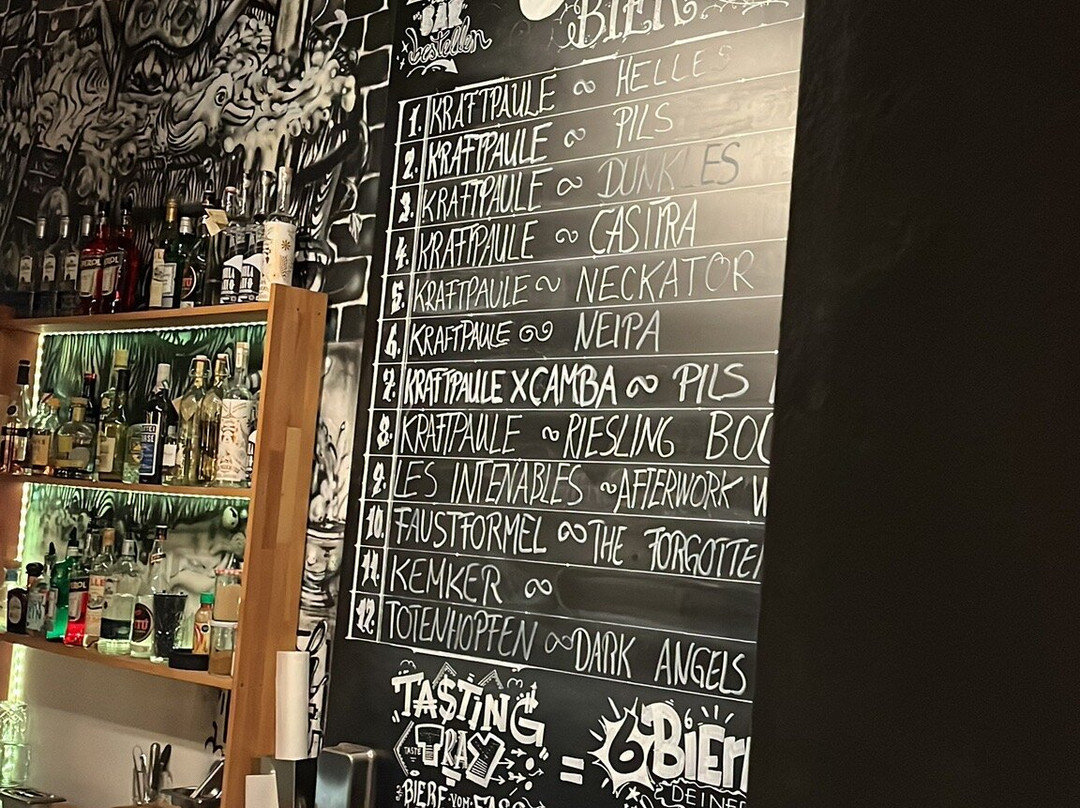 BAR BIER
bestellen
1. KRAFTPAULE ~ HELLES
2. KRAFTPAULE ~ PILS
3. KRAFTPAULE ~ DUNKLES
4. KRAFTPAULE ~ CASITRA
5. KRAFTPAULE ~ NECKATOR
6. KRAFTPAULE ~ NEIPA
7. KRAFTPAULE X CAMBA ~ PILS
8. KRAFTPAULE ~ RIESLING BOC
9. LES INTENABLES ~ AFTERWORK W
10. FAUSTFORMEL ~ THE FORGOTTEN
11. KEMKER ~
12. TOTENHOPFEN ~ DARK ANGELS
TASTING = 6 BIER
TASTE TRAY DEINER
BIERE VOM FASS